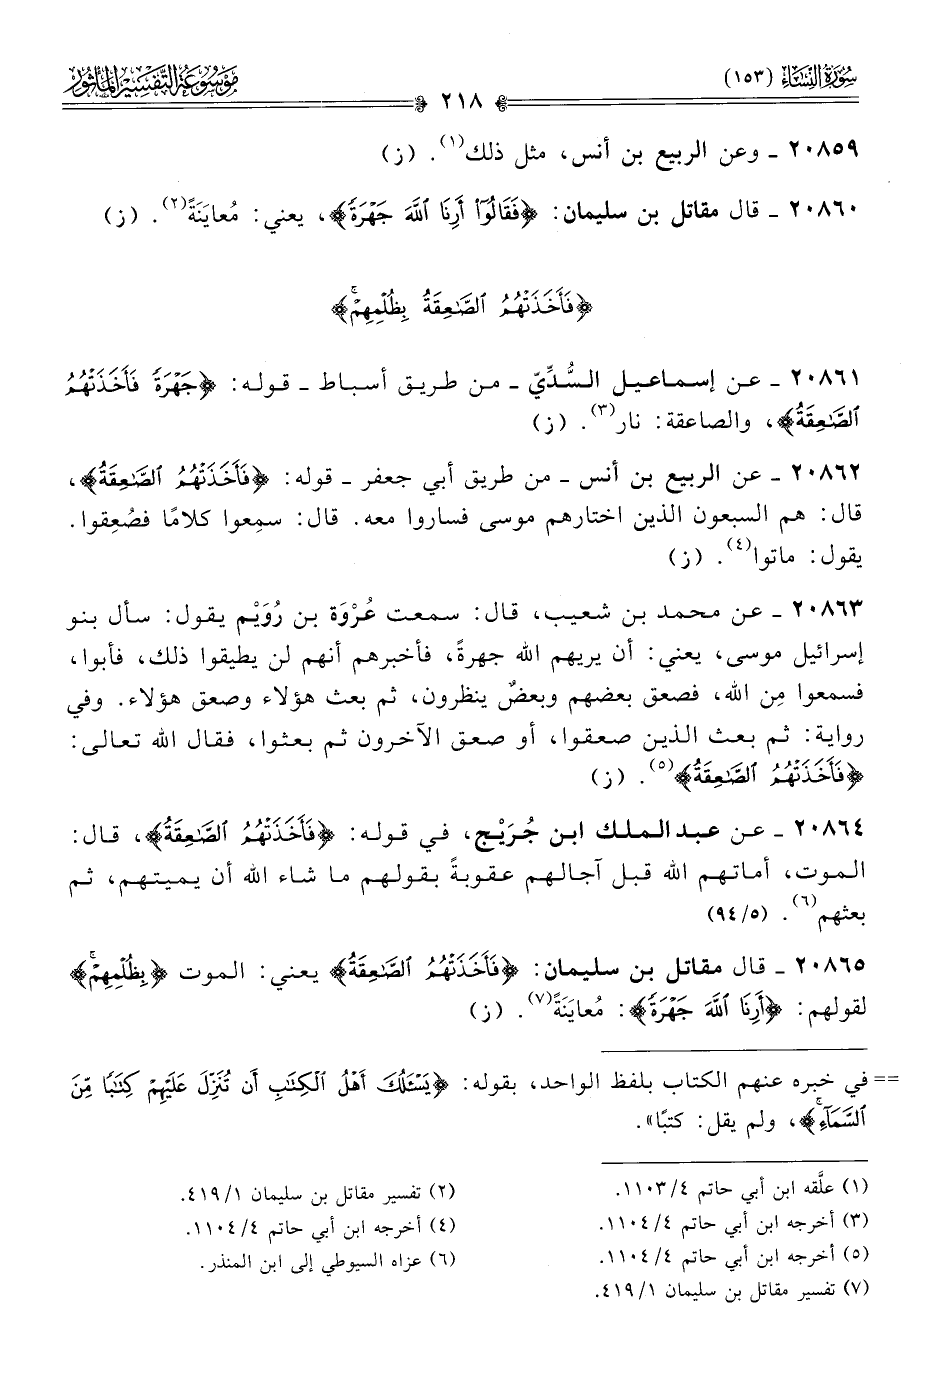 سُورَةُ النِّسَاءِ (١٥٣)
٢١٨
مَوْسُوعَة التَّفْسِيرِ المَأْثُور
٢٠٨٥٩ ـ وعن الربيع بن أنس، مثل ذلك(١). (ز)
٢٠٨٦٠ ـ قال مقاتل بن سليمان: ﴿فَقَالُوٓا۟ أَرِنَا ٱللَّهَ جَهْرَةً﴾، يعني: مُعايَنَةً(٢). (ز)
﴿فَأَخَذَتْهُمُ ٱلصَّـٰعِقَةُ بِظُلْمِهِمْۚ﴾
٢٠٨٦١ ـ عن إسماعيل السُّدِّيّ ـ من طريق أسباط ـ قوله: ﴿جَهْرَةً فَأَخَذَتْهُمُ
ٱلصَّـٰعِقَةُ﴾، والصاعقة: نار(٣). (ز)
٢٠٨٦٢ ـ عن الربيع بن أنس ـ من طريق أبي جعفر ـ قوله: ﴿فَأَخَذَتْهُمُ ٱلصَّـٰعِقَةُ﴾،
قال: هم السبعون الذين اختارهم موسى فساروا معه. قال: سمِعوا كلامًا فصُعِقوا.
يقول: ماتوا(٤). (ز)
٢٠٨٦٣ ـ عن محمد بن شعيب، قال: سمعت عُرْوَة بن رُوَيْم يقول: سأل بنو
إسرائيل موسى، يعني: أن يريهم الله جهرةً، فأخبرهم أنهم لن يطيقوا ذلك، فأبوا،
فسمعوا مِن الله، فصعق بعضهم وبعضٌ ينظرون، ثم بعث هؤلاء وصعق هؤلاء. وفي
رواية: ثم بعث الذين صعقوا، أو صعق الآخرون ثم بعثوا، فقال الله تعالى:
﴿فَأَخَذَتْهُمُ ٱلصَّـٰعِقَةُ﴾(٥). (ز)
٢٠٨٦٤ ـ عن عبد الملك ابن جُرَيْج، في قوله: ﴿فَأَخَذَتْهُمُ ٱلصَّـٰعِقَةُ﴾، قال:
الموت، أماتهم الله قبل آجالهم عقوبةً بقولهم ما شاء الله أن يميتهم، ثم
بعثهم(٦). (٥/٩٤)
٢٠٨٦٥ ـ قال مقاتل بن سليمان: ﴿فَأَخَذَتْهُمُ ٱلصَّـٰعِقَةُ﴾ يعني: الموت ﴿بِظُلْمِهِمْۚ﴾
لقولهم: ﴿أَرِنَا ٱللَّهَ جَهْرَةً﴾: مُعايَنَةً(٧). (ز)
== في خبره عنهم الكتاب بلفظ الواحد، بقوله: ﴿يَسْـَٔلُكَ أَهْلُ ٱلْكِتَـٰبِ أَن تُنَزِّلَ عَلَيْهِمْ كِتَـٰبًا مِّنَ
ٱلسَّمَآءِۚ﴾، ولم يقل: كتبًا».
(١) علَّقه ابن أبي حاتم ٤/ ١١٠٣.
(٢) تفسير مقاتل بن سليمان ١/ ٤١٩.
(٣) أخرجه ابن أبي حاتم ٤/ ١١٠٤.
(٤) أخرجه ابن أبي حاتم ٤/ ١١٠٤.
(٥) أخرجه ابن أبي حاتم ٤/ ١١٠٤.
(٦) عزاه السيوطي إلى ابن المنذر.
(٧) تفسير مقاتل بن سليمان ١/ ٤١٩.